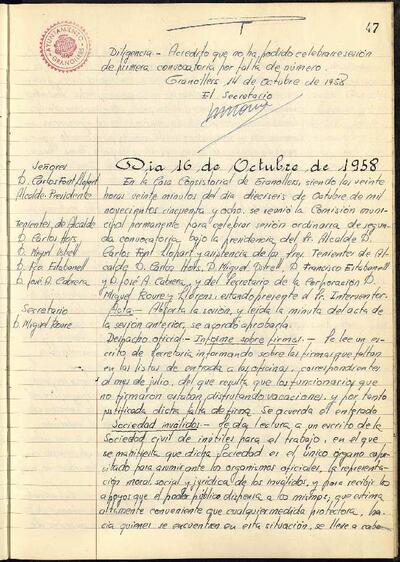 47
AYUNTAMIENTO
GRANOLLERS
Diligencia.- Acredito que no ha podido celebrarse sesión
de primera convocatoria por falta de número.
Granollers 14 de Octubre de 1958
El Secretario
Dia 16 de Octubre de 1958
Señores
D. Carlos Font Llopart
Alcalde-Presidente
Tenientes de Alcalde
D. Carlos
D. Miguel
D. Fco Estabanell
D. José A. Cabrera
Secretario
D. Miguel Roure
En la Casa Consistorial de Granollers, siendo las veinte
horas veinte minutos del día dieciseis de Octubre de mil
novecientos cincuenta y ocho, se reunió la Comisión muni-
cipal permanente para celebrar sesión ordinaria de segun-
da convocatoria, bajo la presidencia del Sr. Alcalde D.
Carlos Font Llopart y asistencia de los Sres. Tenientes de Al-
calde D. Carlos D. Miguel D. Francisco Estabanell
y D. José A. Cabrera, y del Secretario de la Corporación D.
Miguel Roure y Llorens, estando presente el Sr. Interventor.
Acta- Abierta la sesión, y leída la minuta del acta de
la sesión anterior, se acordó aprobarla.
Despacho oficial- Informe sobre firmas.- Se lee un es-
crito de Secretaría informando sobre las firmas que faltan
en las listas de entrada a las oficinas, correspondientes
al mes de julio, del que resulta que los funcionarios que
no firmaron estaban disfrutando vacaciones, y por tanto
justificada dicha falta de firma. Se acuerda el enterado.
Sociedad inválidos.- Se da lectura a un escrito de la
Sociedad civil de inútiles para el trabajo, en el que
se manifiesta que dicha Sociedad es el único órgano capa-
citado para asumir ante los organismos oficiales, la representa-
ción moral, social y jurídica de los inválidos, y para recibir los
apoyos que el poder público dispensa a los mismos; que estima
altamente conveniente que cualquier medida protectora, ha-
cia quienes se encuentren en esta situación, se lleve a cabo